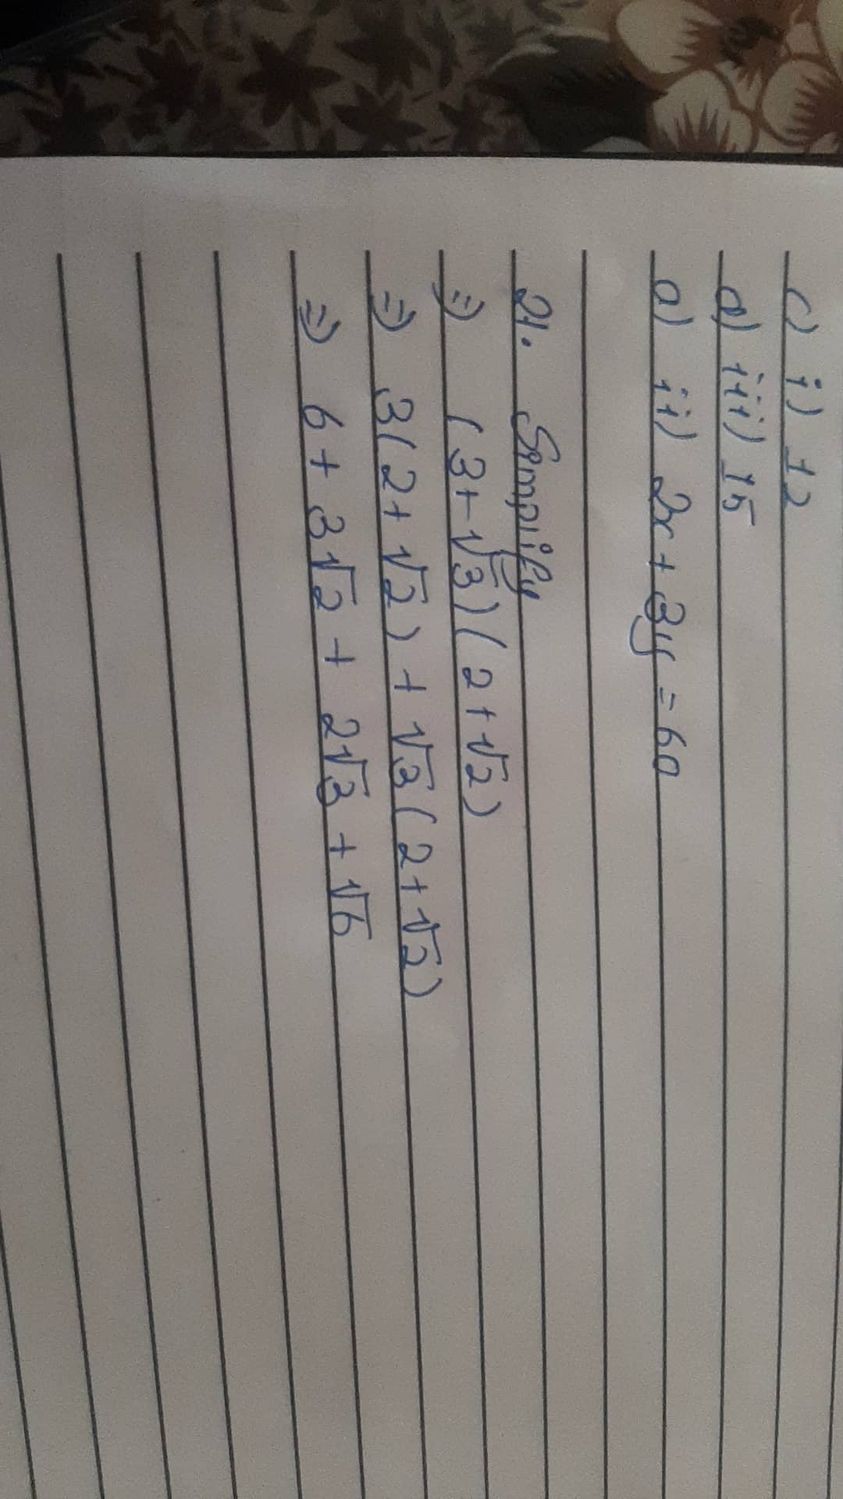 c) i) 12
d) iii) 15
a) ii) 2x + 3y = 60
21. Simplify
⇒ (3+√3)(2+√2)
⇒ 3(2+√2) + √3(2+√2)
⇒ 6+ 3√2 + 2√3 + √6